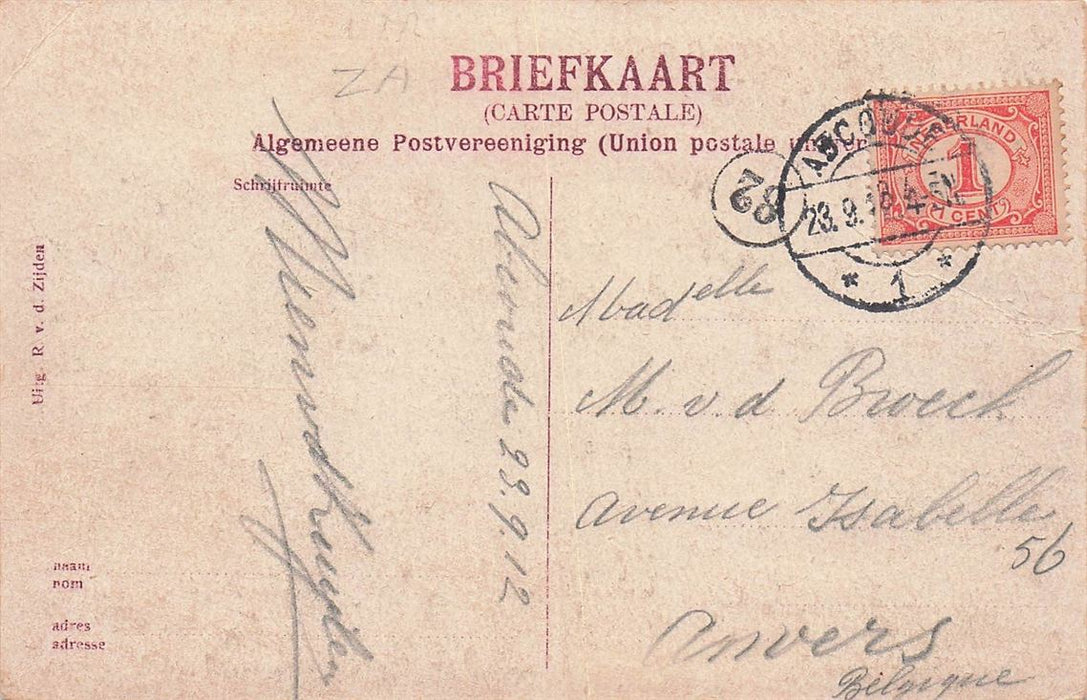 ZA
BRIEFKAART
(CARTE POSTALE)
Algemeene Postvereeniging (Union postale univer
Schrijfruimte
naam
nom
adres
adresse
Uitg. R. v. d. Zijden
23.9.12
82
ABCOUDE
23.9.12 4
1
NEDERLAND
1
1 CENT
Madelle
M. v d Broeck
Avenue Isabelle
56
Anvers
Belgique